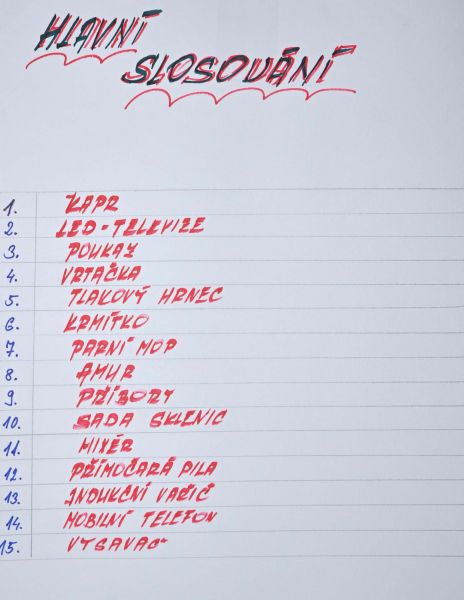 HLAVNÍ
SLOSOVÁNÍ
1. KAPR
2. LED-TELEVIZE
3. POUKAZ
4. VRTAČKA
5. TLAKOVÝ HRNEC
6. KRMÍTKO
7. PARNÍ MOP
8. AMUR
9. PŘÍBORY
10. SADA SKLENIC
11. MIXÉR
12. PŘÍMOČARÁ PILA
13. INDUKČNÍ VAŘIČ
14. MOBILNÍ TELEFON
15. VYSAVAČ